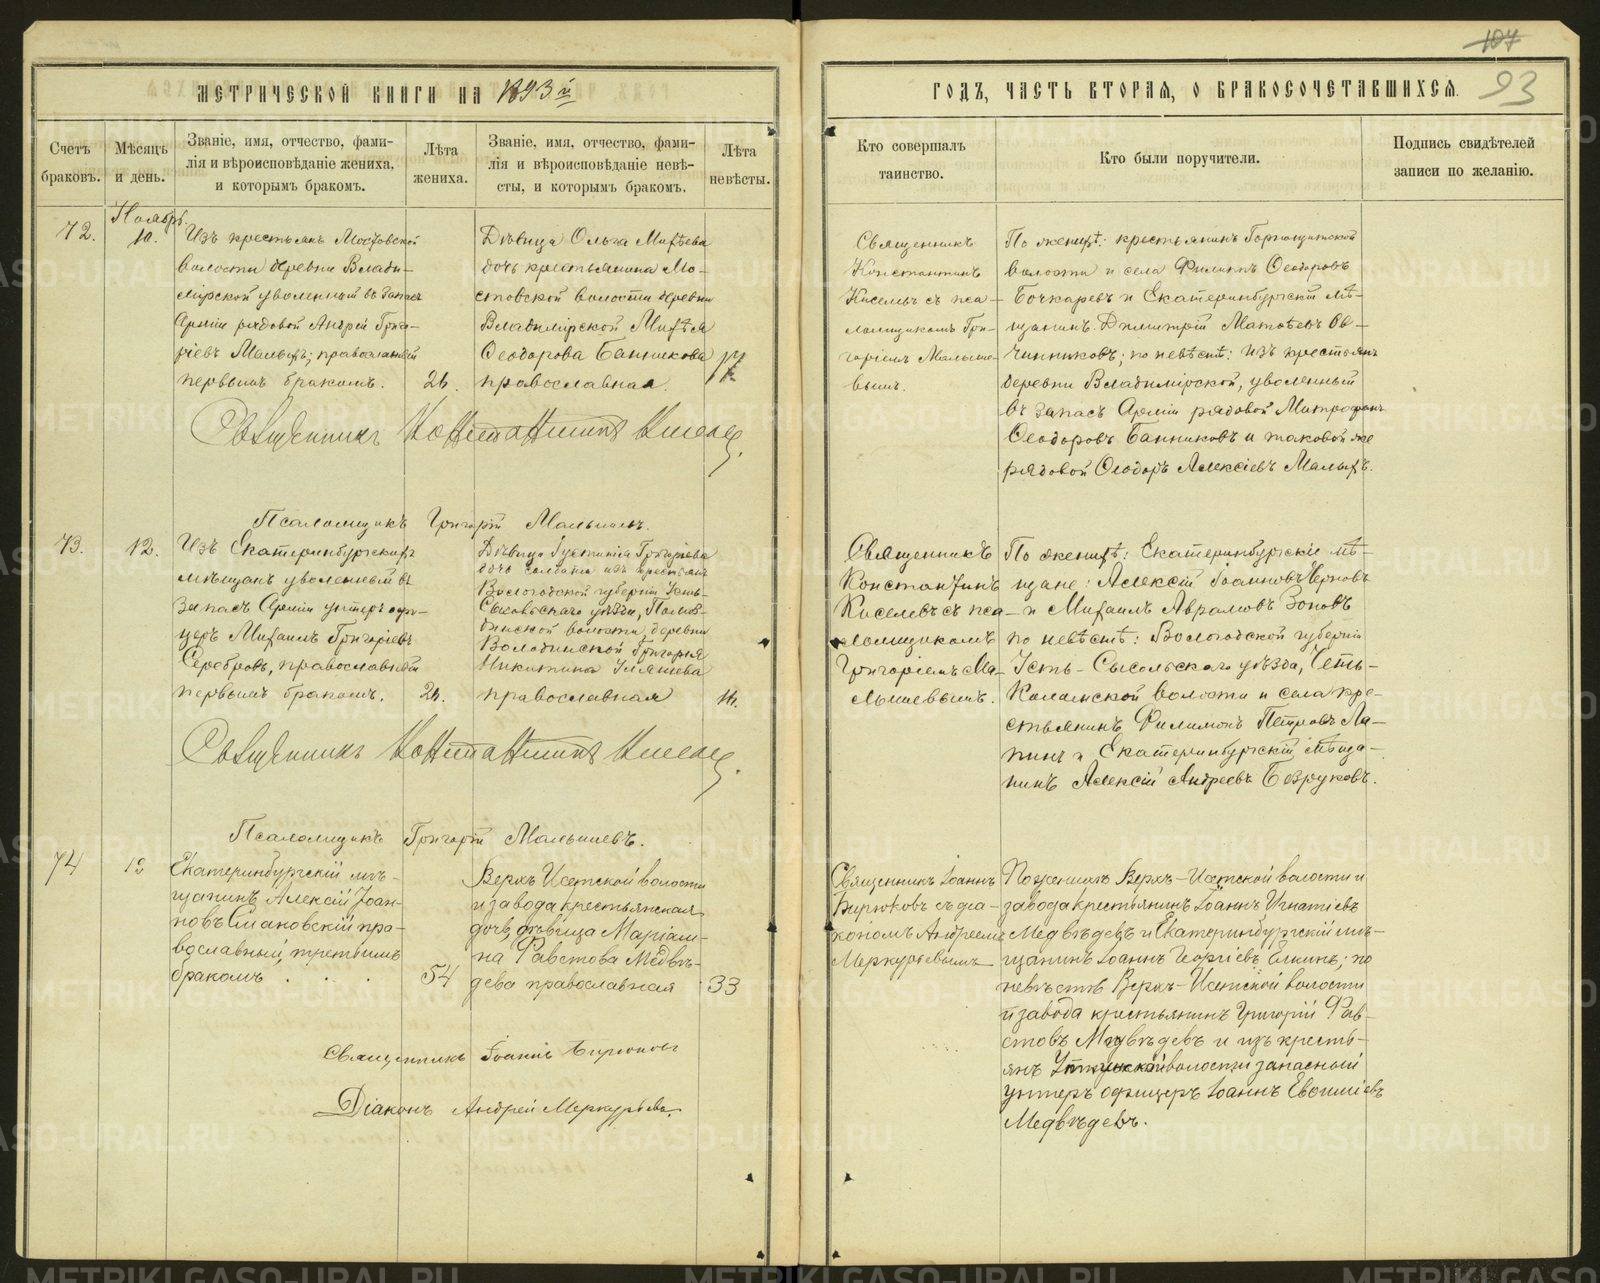 107
93
МЕТРИЧЕСКОЙ КНИГИ НА 1893й
ГОДЪ, ЧАСТЬ ВТОРАЯ, О БРАКОСОЧЕТАВШИХСЯ.
Счетъ
браковъ.
Мѣсяцъ
и день.
Званіе, имя, отчество, фами-
лія и вѣроисповѣданіе жениха,
и которымъ бракомъ.
Лѣта
жениха.
Званіе, имя, отчество, фами-
лія и вѣроисповѣданіе невѣ-
сты, и которымъ бракомъ.
Лѣта
невѣсты.
Кто совершалъ
таинство.
Кто были поручители.
Подпись свидѣтелей
записи по желанію.
72.
Ноябрь
10.
Изъ крестьянъ Мостовской
волости деревни Влади-
мірской уволенный въ запасъ
Арміи рядовой Андрей Григо-
ріевъ Малыхъ; православный
первымъ бракомъ.
26.
Дѣвица Ольга Михѣева
дочь крестьянина Мо-
стовской волости деревни
Владимірской Михѣя
Ѳеодорова Банникова
православная.
Священникъ
Константинъ
Киселевъ съ пса-
ломщикомъ Гри-
горіемъ Малыше-
вымъ.
По женихѣ: крестьянинъ Горнощитской
волости и села Филиппъ Ѳеодоровъ
Бочкаревъ и Екатеринбургскій мѣ-
щанинъ Димитрій Матѳѣевъ Ов-
чинниковъ; по невѣстѣ: изъ крестьянъ
деревни Владимірской, уволенный
въ запасъ Арміи рядовой Митрофанъ
Ѳеодоровъ Банниковъ и таковой же
рядовой Ѳеодоръ Алексіевъ Малыхъ.
Священникъ Константинъ Киселевъ.
Псаломщикъ Григорій Малышевъ.
73.
12.
Изъ Екатеринбургскихъ
мѣщанъ уволенный въ
запасъ Арміи унтеръ офи-
церъ Михаилъ Григоріевъ
Серебровъ, православный
первымъ бракомъ.
26.
Дѣвица Іустинія Григоріева
дочь солдата изъ крестьянъ
Вологодской губерніи Усть-
Сысольскаго уѣзда,
волости, деревни
Григорія
Никитина
православная
Священникъ
Константинъ
Киселевъ съ пса-
ломщикомъ
Григоріемъ Ма-
лышевымъ.
По женихѣ: Екатеринбургскіе мѣ-
щане: Алексій Іоанновъ Черновъ
и Михаилъ Аврамовъ Зоновъ
по невѣстѣ: Вологодской губерніи
Усть-Сысольскаго уѣзда, Усть-
волости и села кре-
стьянинъ Филимонъ Петровъ Ла-
пинъ и Екатеринбургскій мѣща-
нинъ Алексій Андреевъ Безруковъ.
Священникъ Константинъ Киселевъ.
Псаломщикъ Григорій Малышевъ.
74
13
Екатеринбургскій мѣ-
щанинъ Алексій Іоан-
новъ пра-
вославный, третьимъ
бракомъ
54
Верхъ Исетской волости
и завода крестьянская
дочь, дѣвица Маріам-
на Фавстова Медвѣ-
дева православная
33
Священникъ Іоаннъ
Бирюковъ съ діа-
кономъ Андреемъ
Меркурьевымъ
По женихѣ Верхъ-Исетской волости и
завода крестьянинъ Іоаннъ Игнатіевъ
Медвѣдевъ и Екатеринбургскій мѣ-
щанинъ Іоаннъ Георгіевъ Елкинъ; по
невѣстѣ Верхъ-Исетской волости
и завода крестьянинъ Григорій Фав-
стовъ Медвѣдевъ и изъ кресть-
янъ Уткинской волости запасный
унтеръ офицеръ Іоаннъ Евѳиміевъ
Медвѣдевъ.
Священникъ Іоаннъ Бирюковъ
Діаконъ Андрей Меркурьевъ.